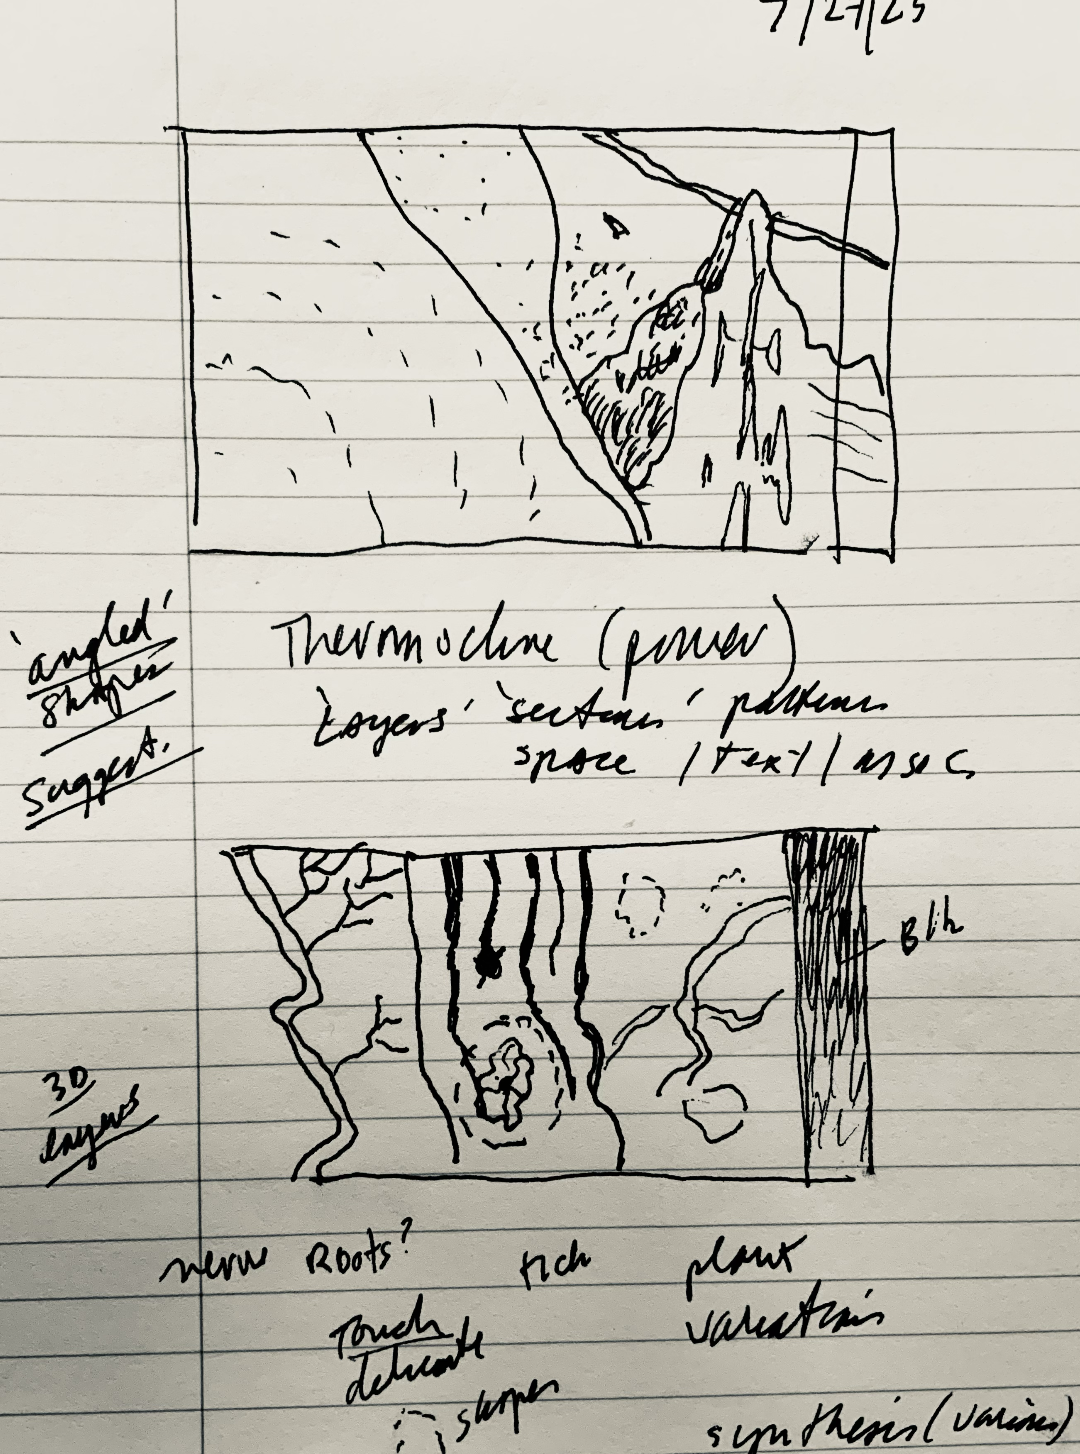 7/27/25
'angled'
shapes
suggest.
Thermocline (power)
'Layers' 'sections' patterns
space / text /
Blk
3D
layers
nerve Roots?
plant
variations
Touch
delicate
shapes
synthesis (various)